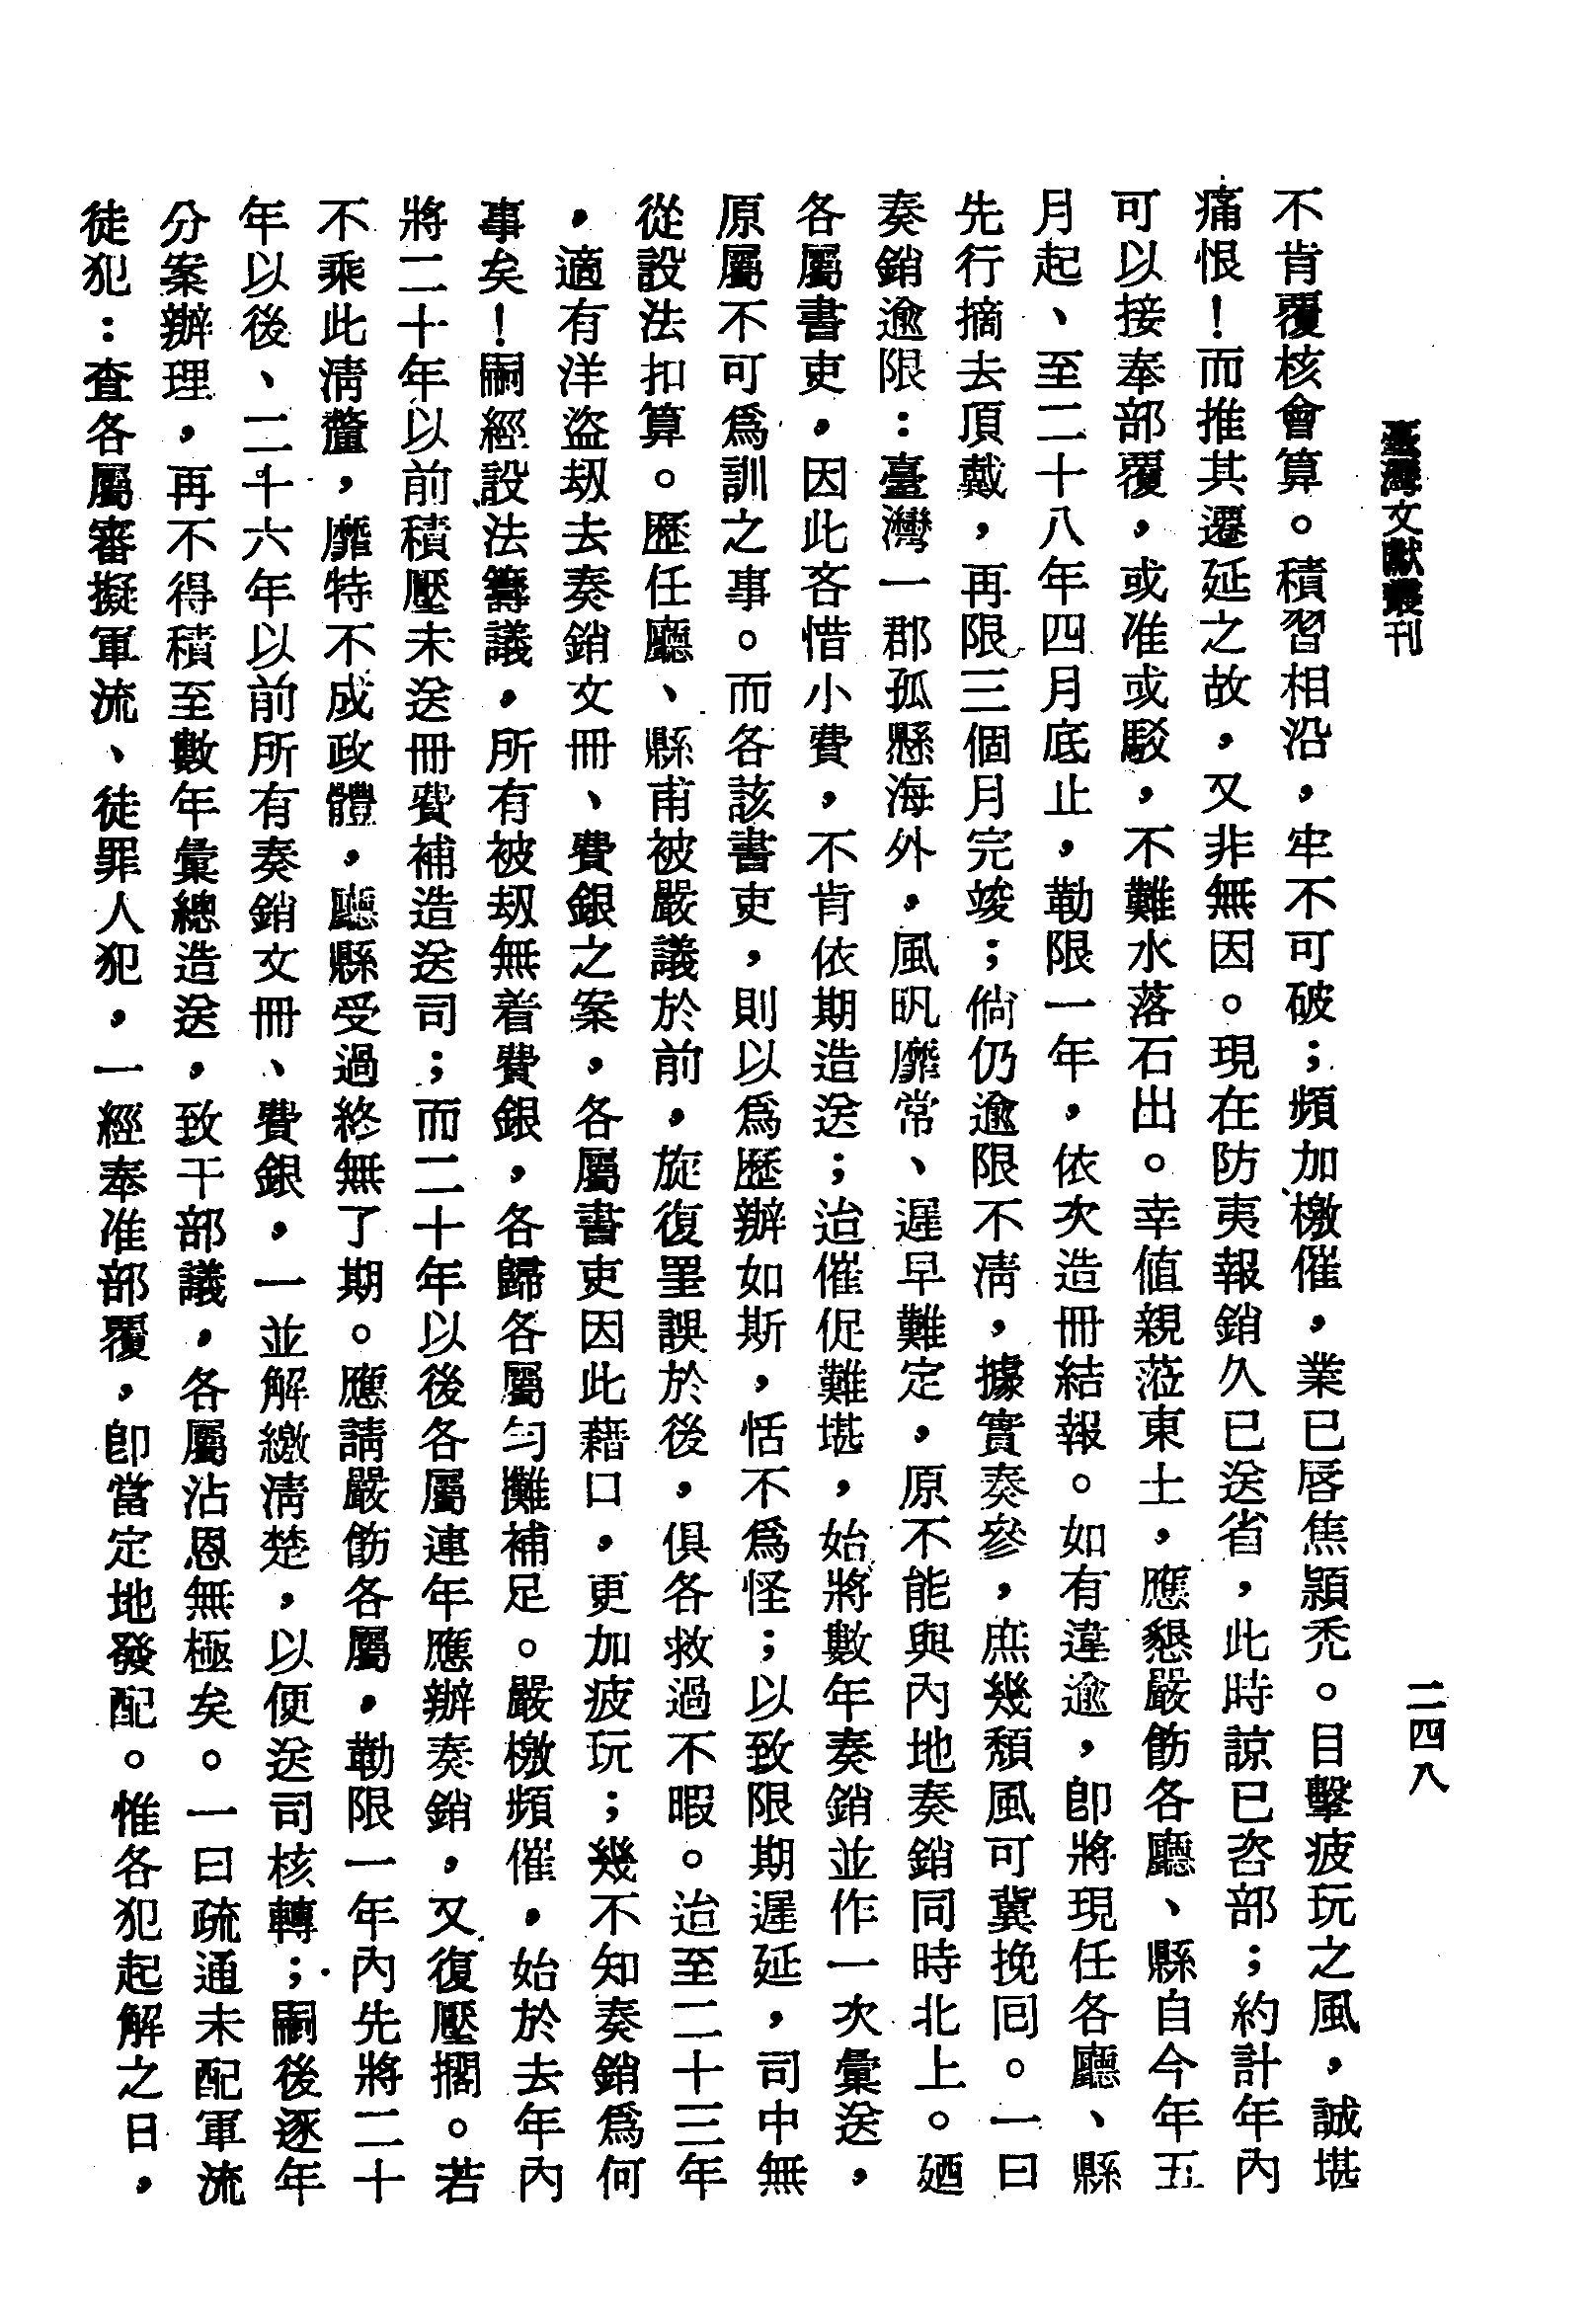 臺灣文獻叢刊
二四八
不肯覆核會算。積習相沿，牢不可破；頻加檄催，業已唇焦頴禿。目擊疲玩之風，誠堪
痛恨！而推其遷延之故，又非無因。現在防夷報銷久已送省，此時諒已咨部；約計年內
可以接奉部覆，或准或駁，不難水落石出。幸値親蒞東土，應懇嚴飭各廳、縣自今年五
月起、至二十八年四月底止，勒限一年，依次造冊結報。如有違逾，卽將現任各廳、縣
先行摘去頂戴，再限三個月完竣；倘仍逾限不淸，據實奏參，庶幾頹風可冀挽囘。一曰
奏銷逾限：臺灣一郡孤懸海外，風帆靡常、遲早難定，原不能與內地奏銷同時北上。廼
各屬書吏，因此吝惜小費，不肯依期造送；迨催促難堪，始將數年奏銷並作一次彙送，
原屬不可爲訓之事。而各該書吏，則以爲歷辦如斯，恬不爲怪；以致限期遲延，司中無
從設法扣算。歷任廳、縣甫被嚴議於前，旋復罣誤於後，俱各救過不暇。迨至二十三年
，適有洋盜刼去奏銷文冊、費銀之案，各屬書吏因此藉口，更加疲玩；幾不知奏銷爲何
事矣！嗣經設法籌議，所有被刼無着費銀，各歸各屬勻攤補足。嚴檄頻催，始於去年內
將二十年以前積壓未送冊費補造送司；而二十年以後各屬連年應辦奏銷，又復壓擱。若
不乘此淸釐，靡特不成政體，廳縣受過終無了期。應請嚴飭各屬，勒限一年內先將二十
年以後、二十六年以前所有奏銷文冊、費銀，一並解繳淸楚，以便送司核轉；嗣後逐年
分案辦理，再不得積至數年彙總造送，致干部議，各屬沾恩無極矣。一曰疏通未配軍流
徒犯：查各屬審擬軍流、徒罪人犯，一經奉准部覆，卽當定地發配。惟各犯起解之日，